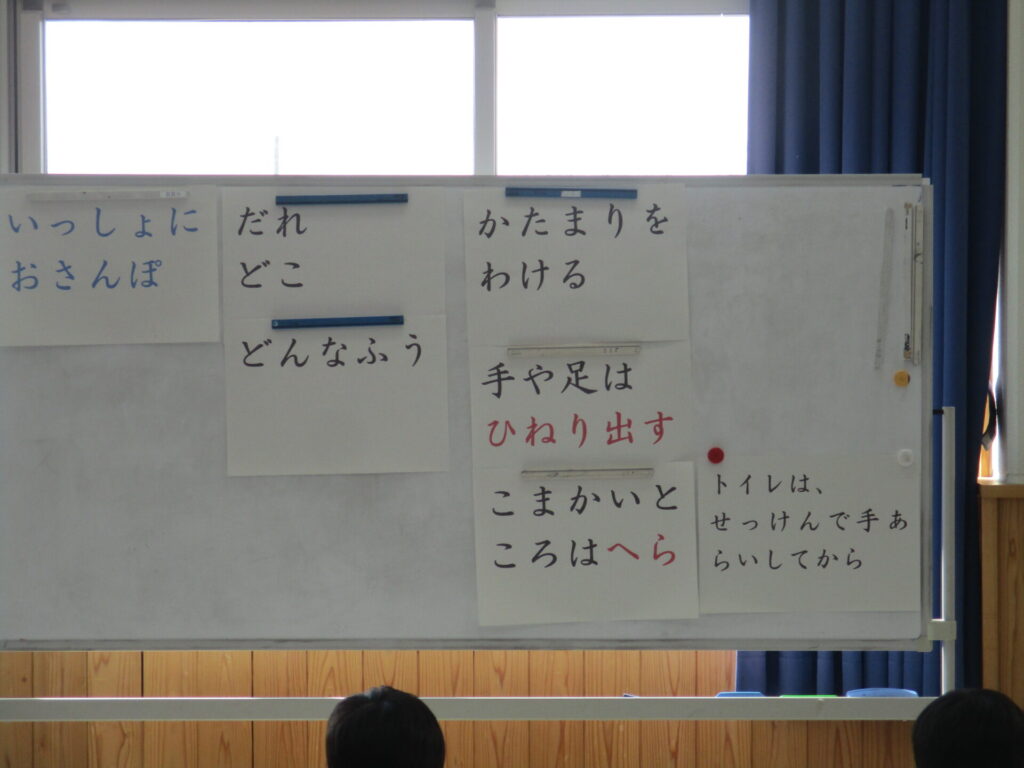 いっしょに
おさんぽ
だれ
どこ
どんなふう
かたまりを
わける
手や足は
ひねり出す
こまかいと
ころはへら
トイレは、
せっけんで手あ
らいしてから